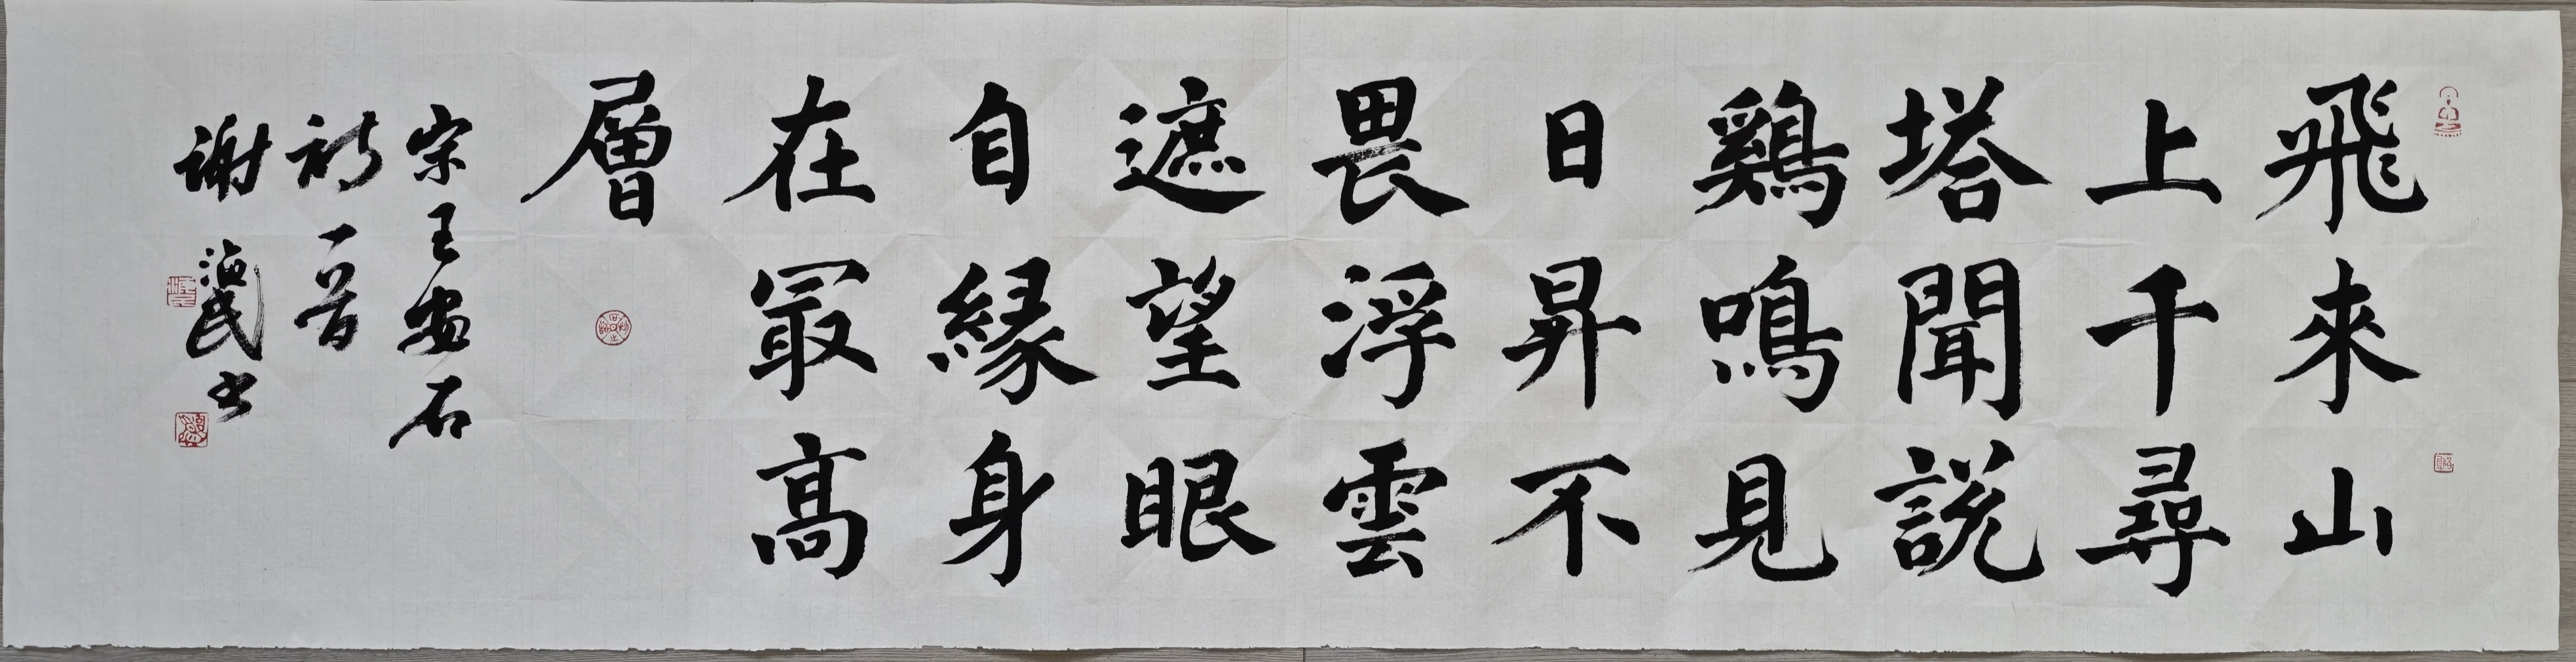 飛來山
上千尋
塔聞說
鷄鳴見
日昇不
畏浮雲
遮望眼
自緣身
在最高
層
宋王安石
詩一首
謝海民书